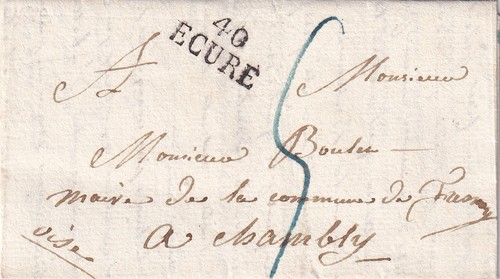 40
ECURÉ
A Monsieur
Monsieur Boulu
maire de la commune de
oise
a Chambly
5